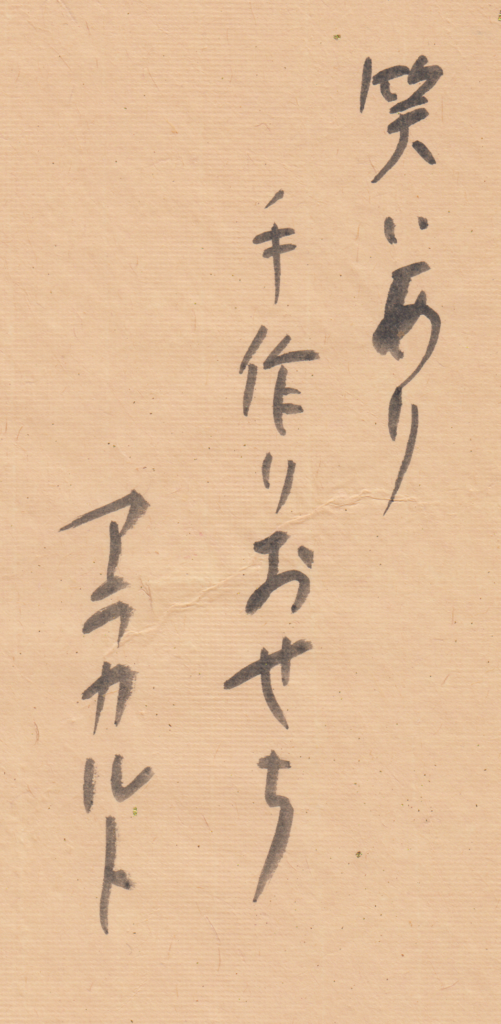 笑いあり
手作りおせち
アラカルト